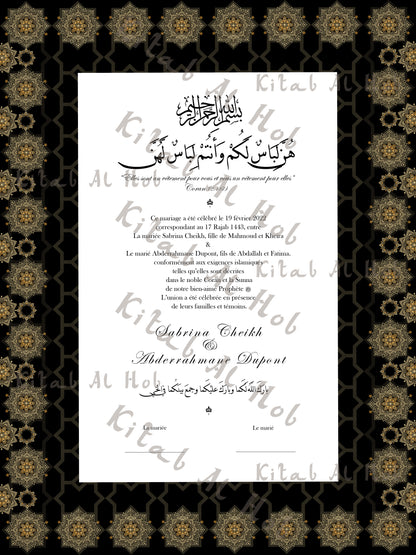 بسم الله الرحمن الرحيم
هُنَّ لِبَاسٌ لَكُمْ وَأَنْتُمْ لِبَاسٌ لَهُنَّ
"Elles sont un vêtement pour vous et vous un vêtement pour elles"
Coran
Ce mariage a été célébré le 19 février 2022
correspondant au 17 Rajab 1443, entre
La mariée Sabrina Cheikh, fille de Mahmoud et Kheira
&
Le marié Abderrahmane Dupont, fils de Abdallah et Fatima.
conformément aux exigences islamiques
telles qu'elles sont décrites
dans le noble Coran et la Sunna
de notre bien-aimé Prophète ﷺ
L'union a été célébrée en présence
de leurs familles et témoins.
Sabrina Cheikh
&
Abderrahmane Dupont
بارك الله لكما وبارك عليكما وجمع بينكما في
La mariée Le marié
Kitab Al Hob
Kitab Al Hob
Kitab Al Hob
Kitab Al Hob
Kitab Al Hob
Kitab Al Hob